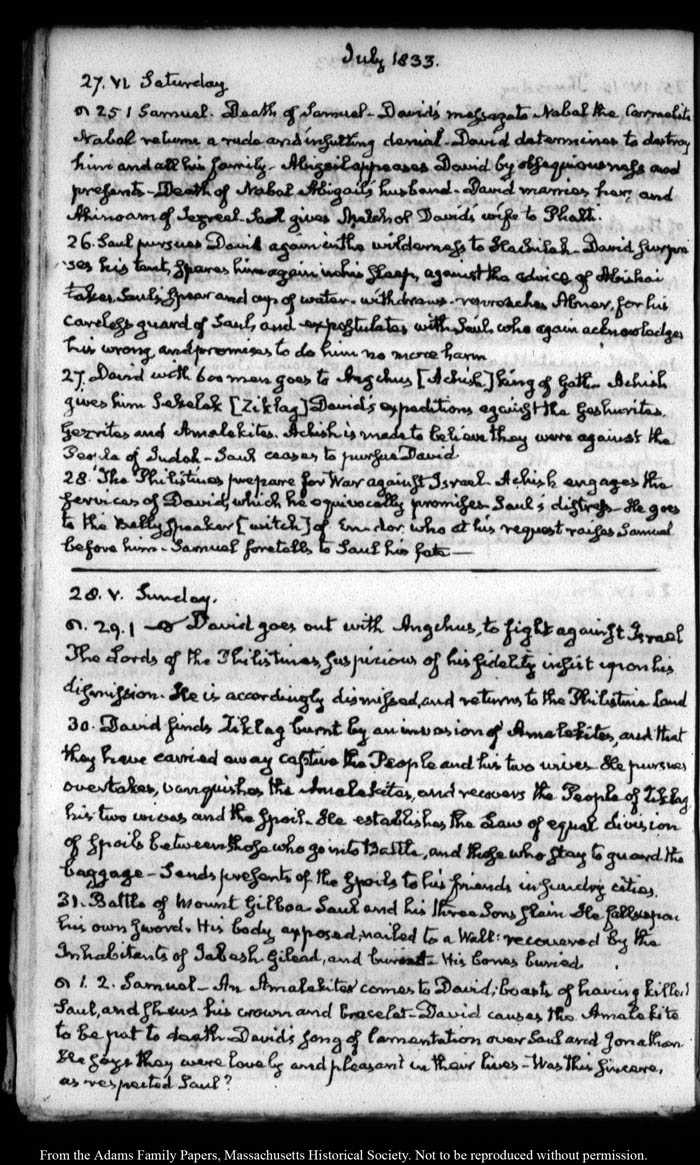 July 1833.
27. VI. Saturday
25 1 Samuel. Death of Samuel - David's message to Nabal the Carmelite
Nabal returns a rude and insulting denial. David determines to destroy
him and all his family - Abigail appeases David by obsequiousness and
presents - Death of Nabal Abigail's husband - David marries her, and
Ahinoam of Jezreel. Saul gives Melchol David's wife to Phalti.
26. Saul pursues David again in the wilderness to Hachilah - David surpri
ses his tent, spares him again in his sleep, against the advice of Abishai
takes Saul's spear and cup of water - withdraws - reproaches Abner, for his
careless guard of Saul, and expostulates with Saul, who again acknowledges
his wrong, and promises to do him no more harm
27. David with 600 men goes to Angchus [Achish] king of Gath - Achish
gives him Sekelak [Ziklag] David's expeditions against the Geshurites.
Gezrites and Amalekites. Achish is made to believe they were against the
People of Judah - Saul ceases to pursue David.
28. The Philistines prepare for War against Israel - Achish engages the
services of David, which he equivocally promises - Saul's distress - He goes
to the Belly speaker [witch] of En-dor, who at his request raises Samuel
before him - Samuel foretells to Saul his fate —
28. V. Sunday.
29. 1 David goes out with Angchus, to fight against Israel
The Lords of the Philistines, suspicious of his fidelity insist upon his
dismission. He is accordingly dismissed, and returns to the Philistine Land
30. David finds Ziklag burnt by an invasion of Amalekites, and that
they have carried away captive the People and his two wives - He pursues
overtakes, vanquishes the Amalekites, and recovers the People of Ziklag,
his two wives and the spoil. He establishes the Law of equal division
of spoils between those who go into Battle, and those who stay to guard the
baggage - Sends presents of the spoils to his friends in sundry cities.
31. Battle of Mount Gilboa Saul and his three Sons slain He falls upon
his own sword. His body exposed, nailed to a Wall: recovered by the
Inhabitants of Jabesh Gilead, and burnt. His bones buried.
1. 2. Samuel - An Amalekite comes to David; boasts of having killed
Saul, and shews his crown and bracelet - David causes the Amalekite
to be put to death David's song of lamentation over Saul and Jonathan
He says they were lovely and pleasant in their lives - Was this sincere,
as respected Saul?
From the Adams Family Papers, Massachusetts Historical Society. Not to be reproduced without permission.